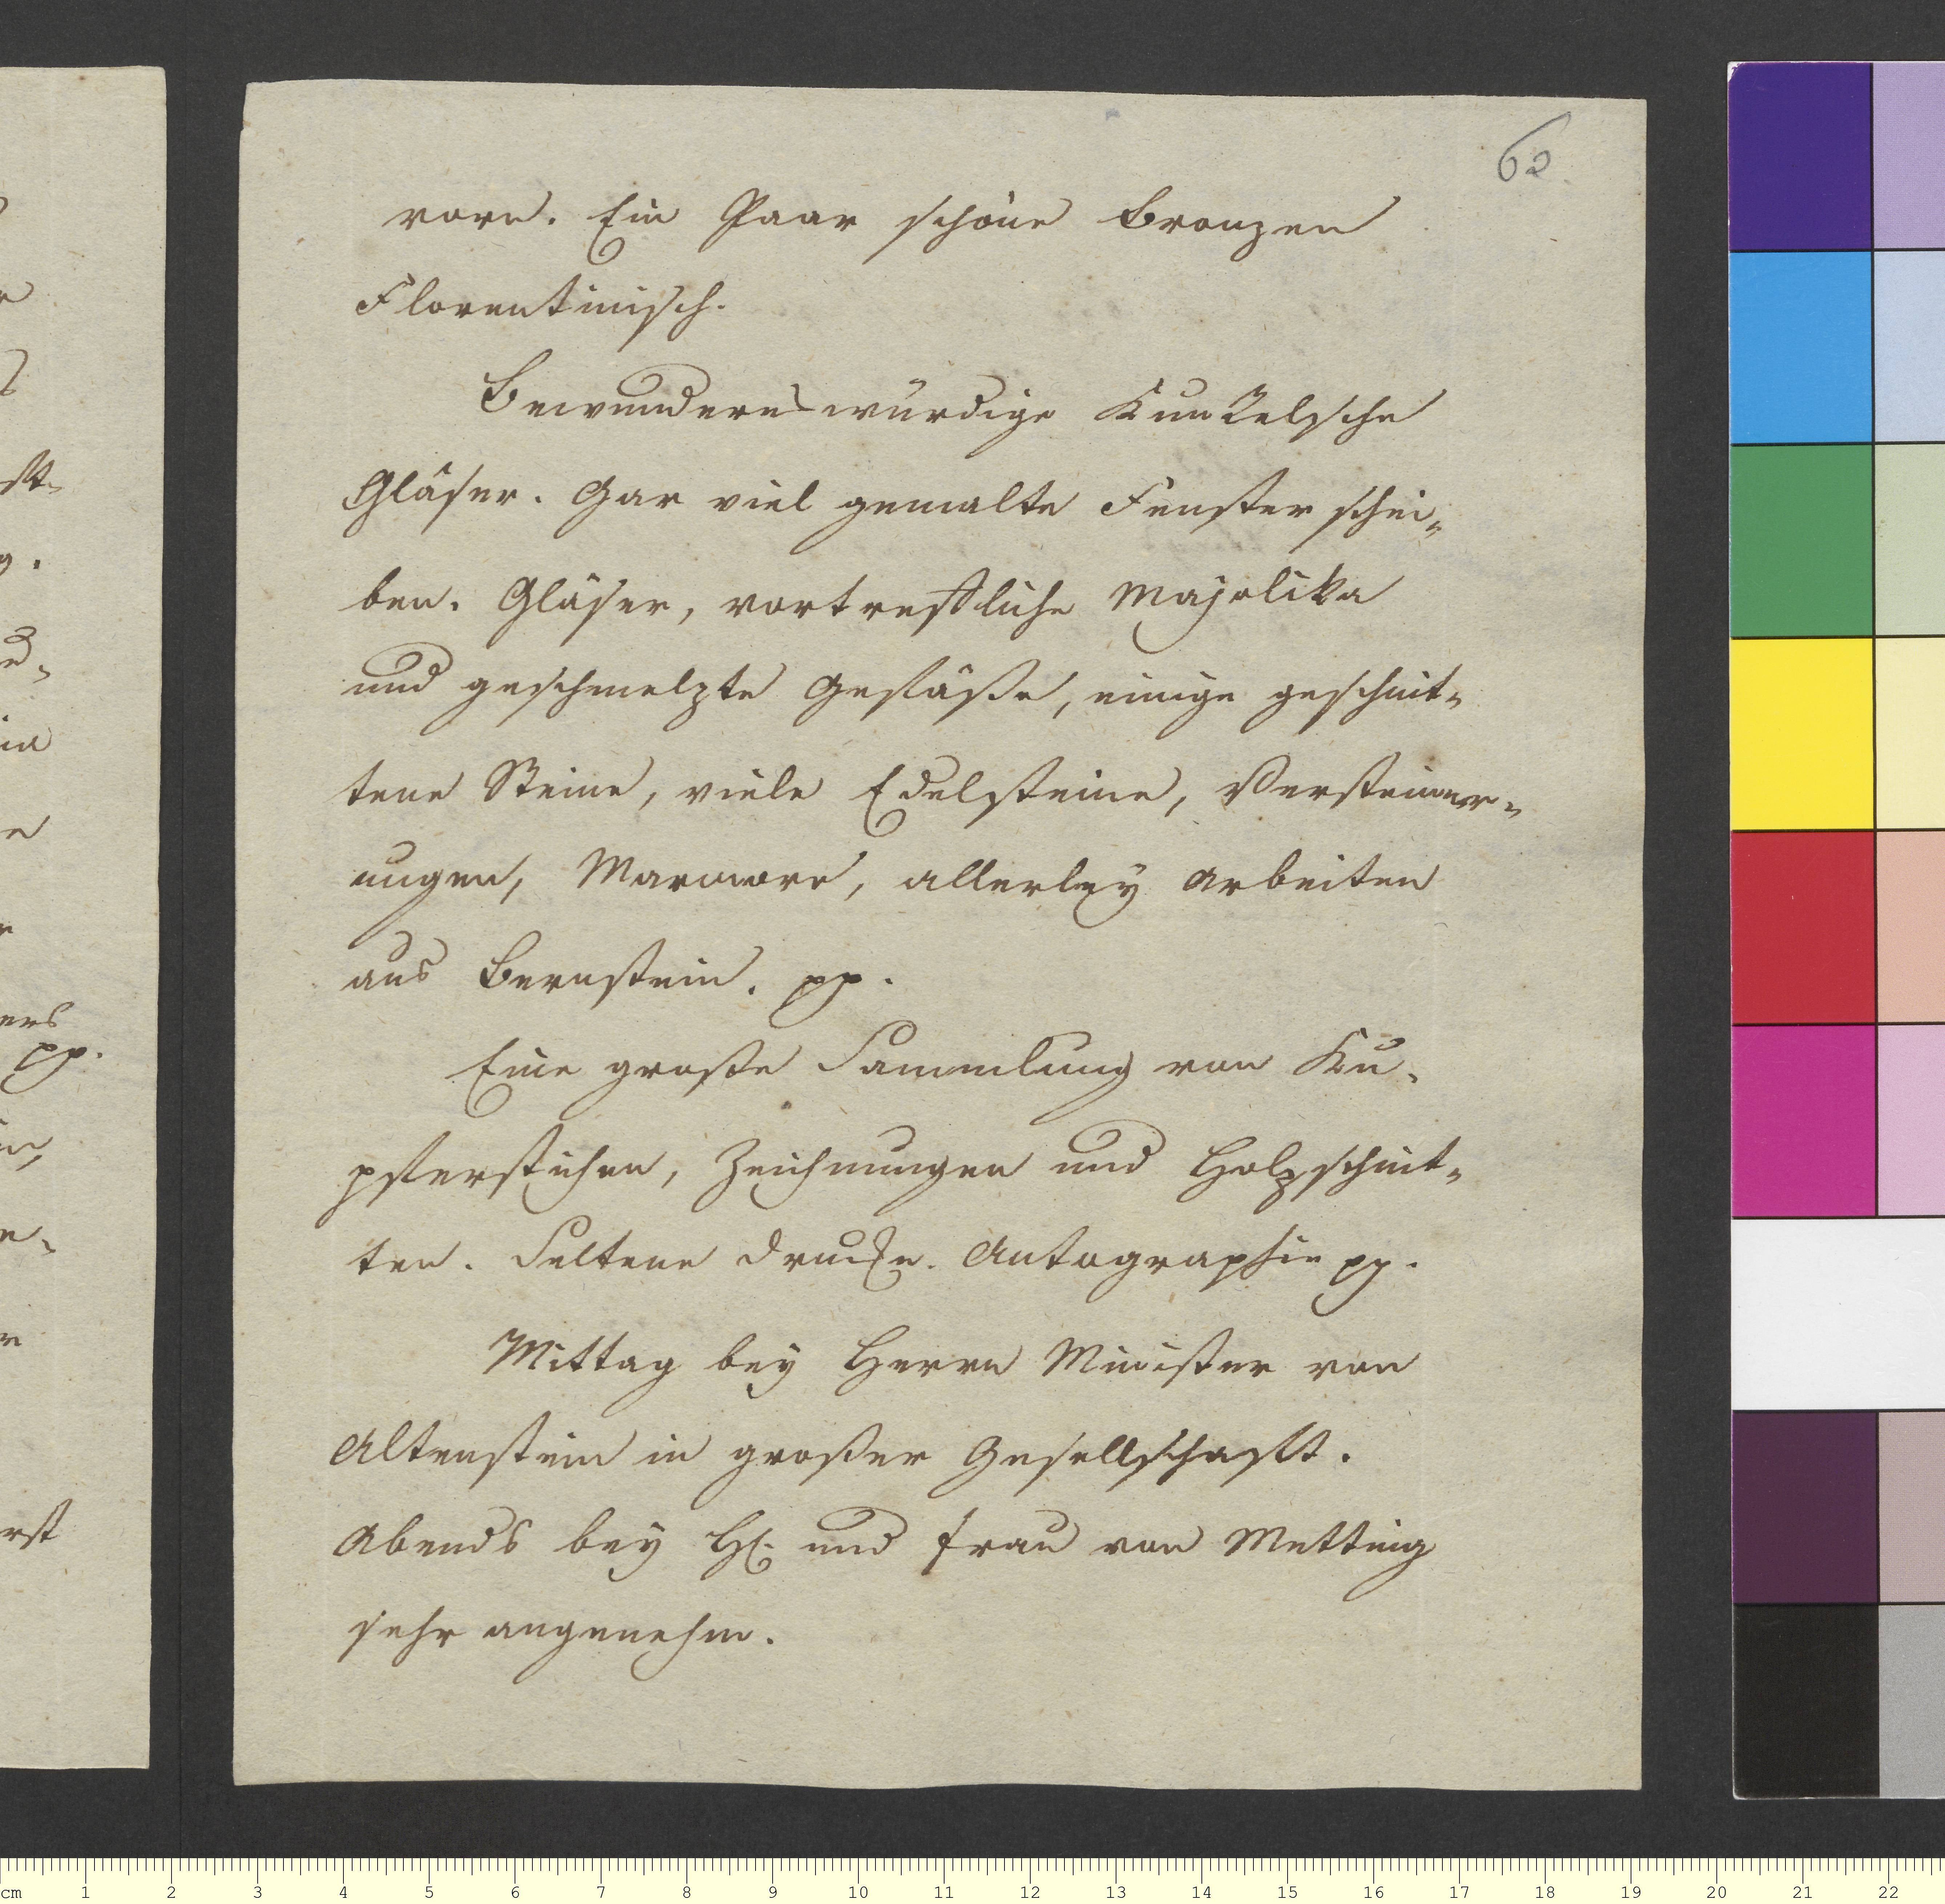 60.
vorn. Ein Paar schöne Bronzen
Florentinisch.
Bewundernswürdige Kunkelsche
Gläser. Gar viel gemalte Fenster schei-
ben. Gläser, vortreffliche Majolika
und geschmelzte Gefäße, einige geschnit-
tene Steine, viele Edelsteine, Versteiner-
ungen, Marmore, allerley Arbeiten
aus Bernstein. pp.
Eine große Sammlung von Ku-
pferstichen, Zeichnungen und Holzschnit-
ten. Seltene Drucke. Autographie pp.
Mittag bey Herrn Minister von
Altenstein in großer Gesellschafft.
Abends bey H. und Frau von Metting
sehr angenehm.
st-
in
ers
pp.
rst
cm 1 2 3 4 5 6 7 8 9 10 11 12 13 14 15 16 17 18 19 20 21 22